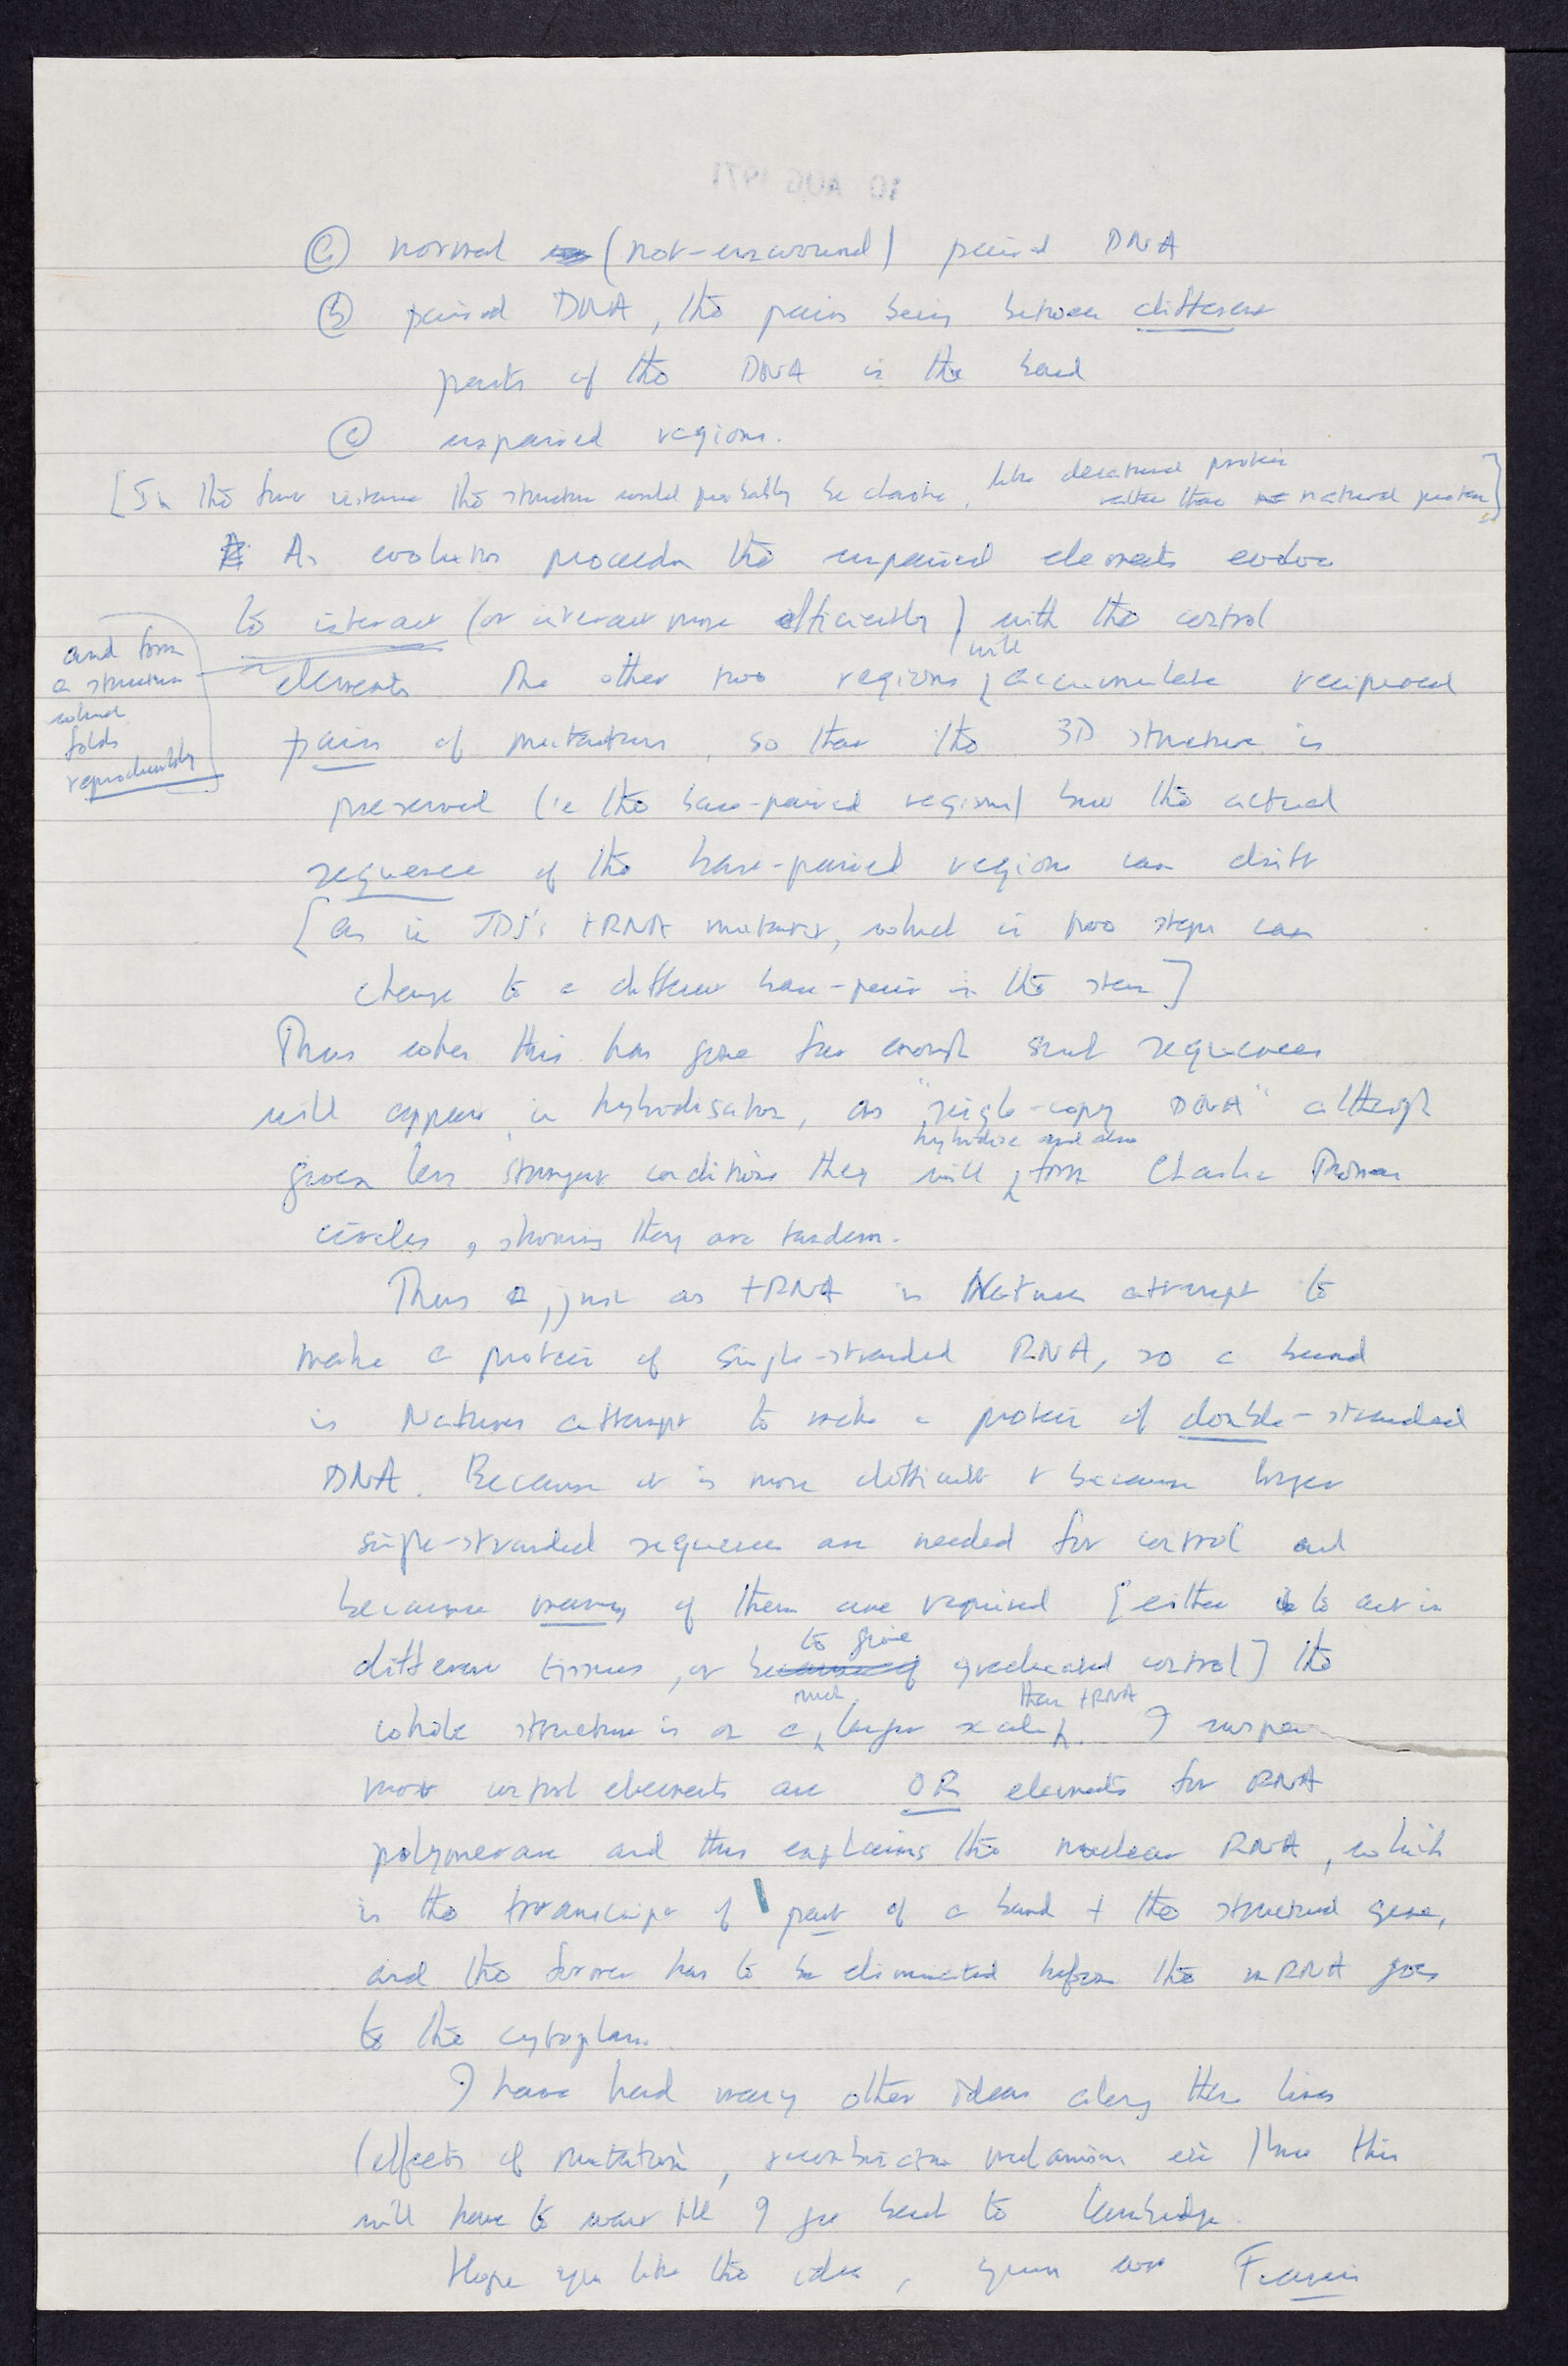 10 AUG 1971
(a) normal (not-unwound) paired DNA
(b) paired DNA, the pairs being between different
parts of the DNA in the band
(c) unpaired regions.
[In the first instance the structure would probably be chaotic, like denatured protein
rather than natural protein]
As evolution proceeds the unpaired elements evolve
to interact (or interact more efficiently) with the control
and form
a structure
which
folds
reproducibly
elements. The other two regions will accumulate reciprocal
pairs of mutations, so that the 3D structure is
preserved (ie the base-paired regions) but the actual
sequence of the base-paired regions can drift
[as in JDS's tRNA mutants, which in two steps can
change to a different base-pair in the stem]
Thus when this has gone far enough such sequences
will appear, in hybridisation, as "single-copy DNA" although
given less stringent conditions they will hybridise and also form Charlie Thomas
circles, showing they are tandem.
Thus, just as tRNA is Nature's attempt to
make a protein of single-stranded RNA, so a band
is Nature's attempt to make a protein of double-stranded
DNA. Because it is more difficult + because longer
single-stranded sequences are needed for control and
because many of them are required [either to act in
different tissues, or because of to give graduated control] the
whole structure is on a much larger scale than tRNA. I suspect
most control elements are OR elements for RNA
polymerase and this explains the nuclear RNA, which
is the transcript of part of a band + the structural gene,
and the former has to be eliminated before the mRNA goes
to the cytoplasm.
I have had many other ideas along these lines
(effects of mutation, recombination mechanism etc) but this
will have to wait till I get back to Cambridge.
Hope you like the idea, yours ever Francis